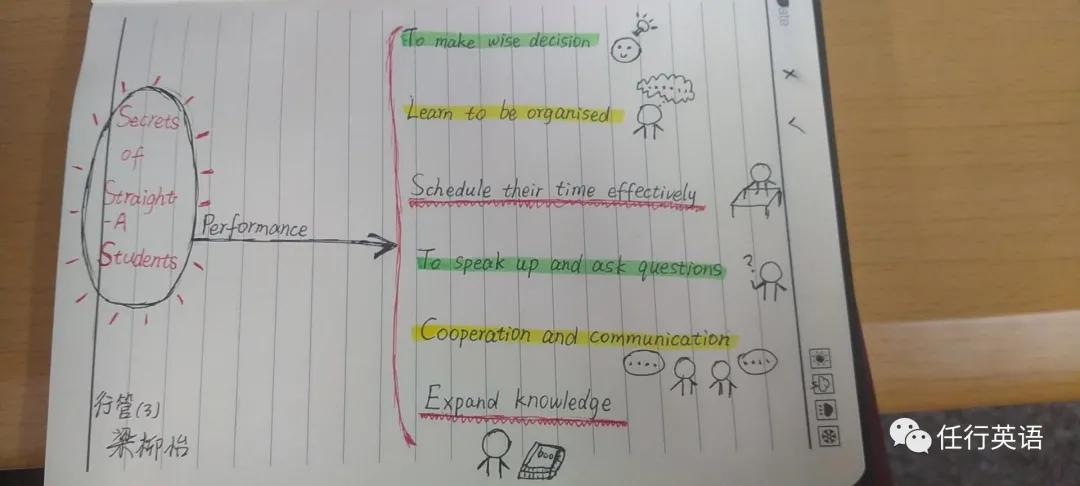 Secrets
of
Straight
-A
Students
Performance
To make wise decision
Learn to be organised
Schedule their time effectively
To speak up and ask questions
?
Cooperation and communication
Expand knowledge
book
行管(3)
梁柳怡
任行英语